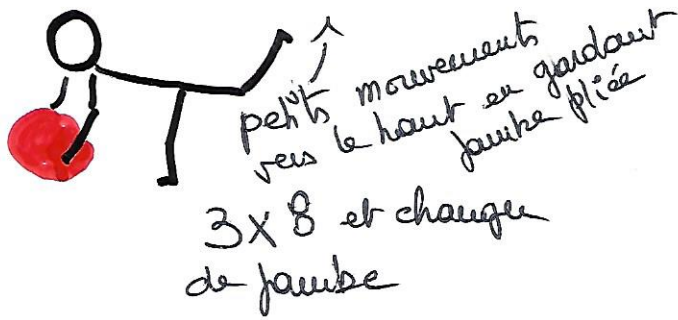 petits mouvements
vers le haut en gardant
jambe pliée
3x8 et changer
de jambe